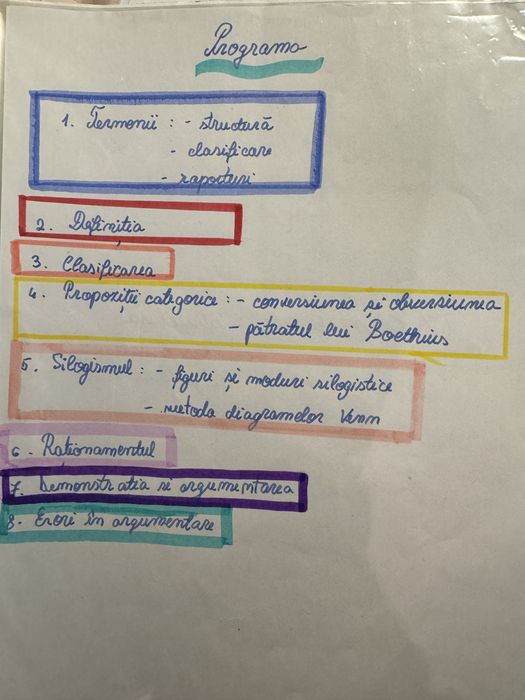 Programa
1. Termenii : - structură
- clasificare
- raporturi
2. Definiția
3. Clasificarea
4. Propoziții categorice : - conversiunea și obversiunea
- pătratul lui Boethius
5. Silogismul : - figuri și moduri silogistice
- metoda diagramelor Venn
6. Raționamentul
7. Demonstratia si argumentarea
8. Erori în argumentare